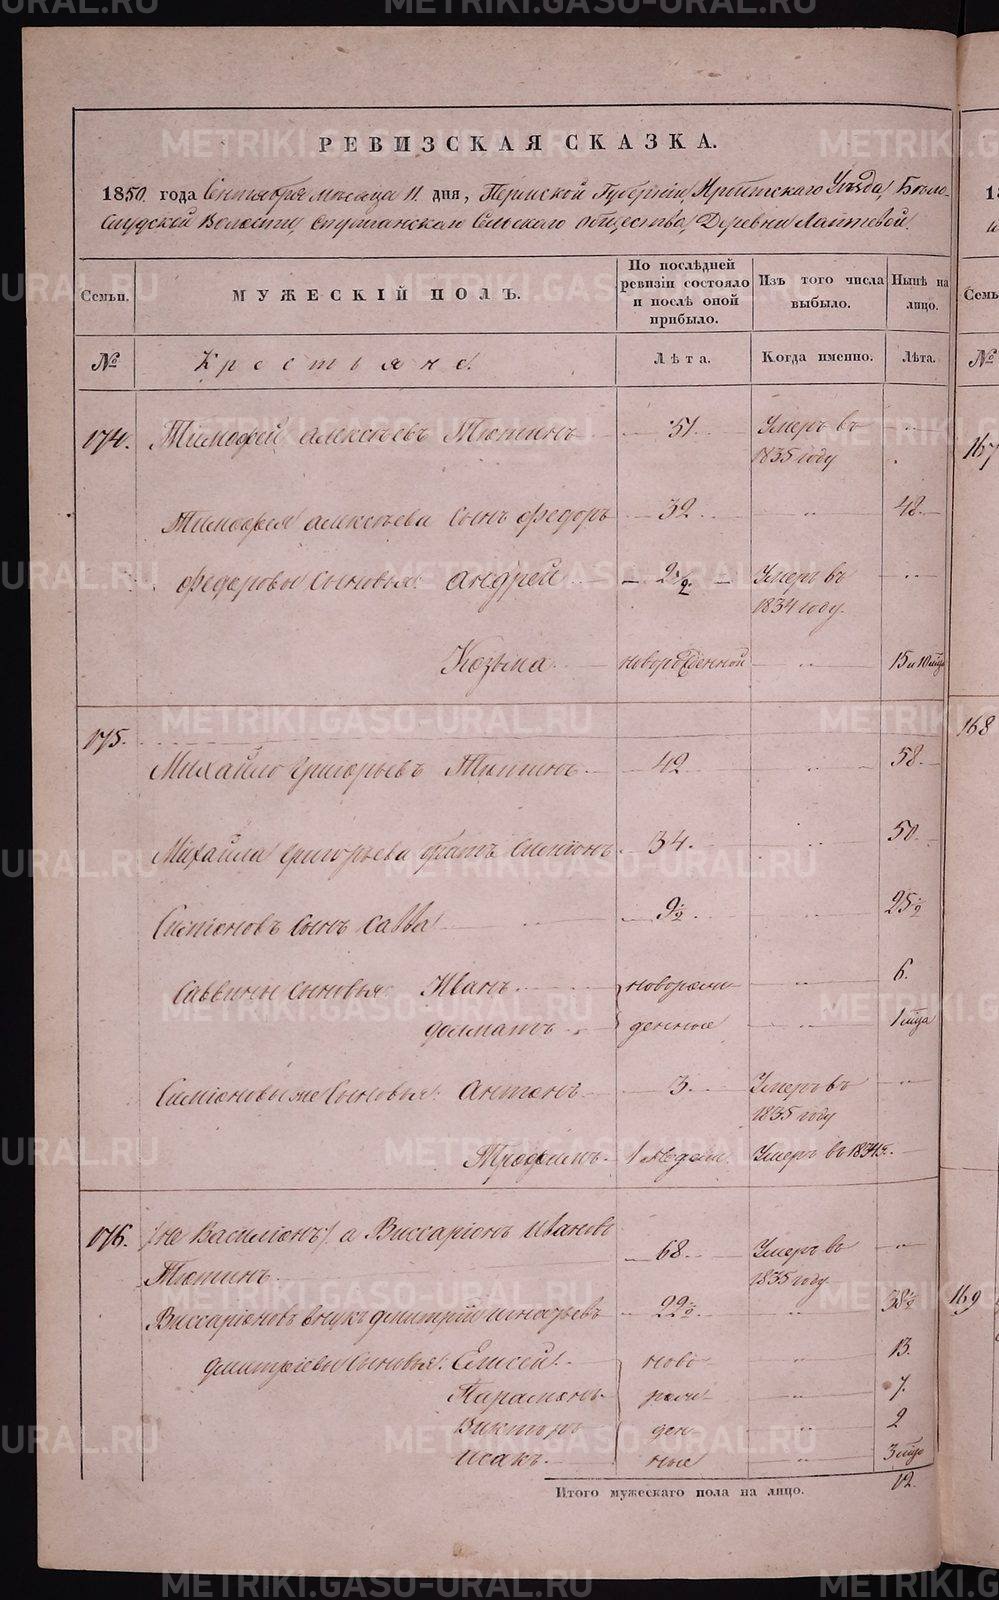 METRIKI.GASO-URAL.RU
РЕВИЗСКАЯ СКАЗКА.
1850. года Сентября месяца 11. дня, Пермской Губерніи, Ирбитскаго Уѣзда, Бѣло-
слудской Волости, Сельскаго общества, Деревни Лаптевой.
Семьи.
МУЖЕСКІЙ ПОЛЪ.
По послѣдней ревизіи состояло и послѣ оной прибыло.
Изъ того числа выбыло.
Нынѣ на лицо.
№
Крестьяне.
Лѣта.
Когда именно.
Лѣта.
174. Тимофей алексѣевъ Тютинъ 51 Умеръ въ 1835 году
Тимофея алексѣева сынъ федоръ 32 48
федоровы сыновья андрей 2 1/2 Умеръ въ 1834 году.
Козьма новорожденной 15 и 10 мца
175.
Михайло григорьевъ Тютинъ 42 58
Михайла григорьева братъ симіонъ 34. 50
Симіоновъ сынъ савва 9 1/2 25 1/2
Саввины сыновья Иванъ новорож- 6.
далматъ денные 1 мца
Симіоновы же сыновья: антонъ 3 Умеръ въ 1835 году
Трофимъ 1 недели. Умеръ въ 1834 г.
176. /не Василіонъ/ а Виссаріонъ ивановъ
Тютинъ 68 Умеръ въ 1835 году
Виссаріоновъ внукъ дмитрій игнатьевъ 22 1/2 38 1/2
дмитріевы сыновья: Елисей ново 13.
Парамонъ рож- 7.
Викторъ ден- 2
Исакъ ные 3 мца
Итого мужескаго пола на лицо. 12.
18
Семь
№
167
168
169